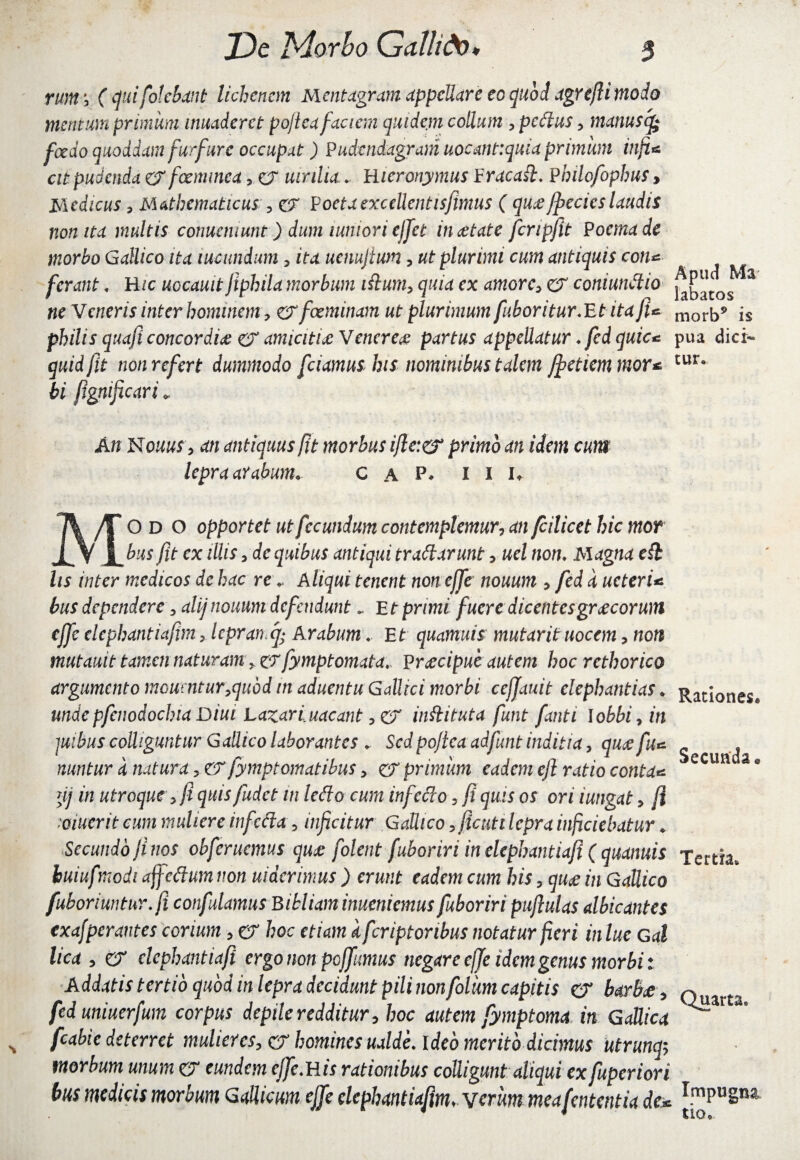 De Morbo Gallico. 3
rum; (qui solebant lichenem Mentagram appellare eo quòd agresti modo
mentum primùm inuaderet postea faciem quidem collum, pectus, manusq;
fœdo quoddam furfure occupat) Pudendagram uocant:quia primùm infi-
cit pudenda & fœminea, & uirilia. Hieronymus Fracast. Philosophus,
Medicus, Mathematicus, & Poeta excellentissimus (quæ species laudis
non ita multis conueniunt) dum iuniori esset in ætate scripsit Poema de
morbo Gallico ita iucundum, ita uenustum, ut plurimi cum antiquis con-
ferant. Hic uocauit siphila morbum istum, quia ex amore, & coniunctio
ne Veneris inter hominem, & fœminam ut plurimum suboritur. Et ita si-
philis quasi concordiæ & amicitiæ Venereæ partus appellatur. sed quic-
quid sit non refert dummodo sciamus his nominibus talem spetiem mor-
bi significari.
Apud Ma
labatos
morb⁹ is
pua dici-
tur.
An Nouus, an antiquus sit morbus iste:& primò an idem cum
lepra arabum. CAP. III.
MODO opportet ut secundum contemplemur, an scilicet hic mor
bus sit ex illis, de quibus antiqui tractarunt, uel non. Magna est
lis inter medicos de hac re. Aliqui tenent non esse nouum, sed à ueteri-
bus dependere, alij nouum defendunt. Et primi fuere dicentes græcorum
esse elephantiasim, lepramq; Arabum. Et quamuis mutarit uocem, non
mutauit tamen naturam, & symptomata. Præcipuè autem hoc rethorico
argumento mouentur,quòd in aduentu Gallici morbi cessauit elephantias.
unde psenodochia Diui Lazari uacant, & instituta sunt santi Iobbi, in
quibus colliguntur Gallico laborantes. Sed postea adsunt inditia, quæ su-
nuntur à natura, & symptomatibus, & primùm eadem est ratio conta-
gij in utroque, si quis sudet in lecto cum infecto, si quis os ori iungat, si
coiuerit cum muliere infecta, inficitur Gallico, sicuti lepra inficiebatur.
Secundò si nos obseruemus quæ solent suboriri in elephantiasi (quanuis
huiusmodi affectum non uiderimus) erunt eadem cum his, quæ in Gallico
suboriuntur. si consulamus Bibliam inueniemus suboriri pustulas albicantes
exasperantes corium, & hoc etiam à scriptoribus notatur fieri in lue Gal
lica, & elephantiasi ergo non possumus negare esse idem genus morbi:
Addatis tertiò quòd in lepra decidunt pili non solùm capitis & barbæ,
sed uniuersum corpus depile redditur, hoc autem symptoma in Gallica
scabie deterret mulieres, & homines ualdè. Ideò meritò dicimus utrunq;
morbum unum & eundem esse. His rationibus colligunt aliqui ex superiori
bus medicis morbum Gallicum esse elephantiasim. Verùm mea sententia de-
Rationes.
Secunda.
Tertia.
Quarta.
Impugna
tio.